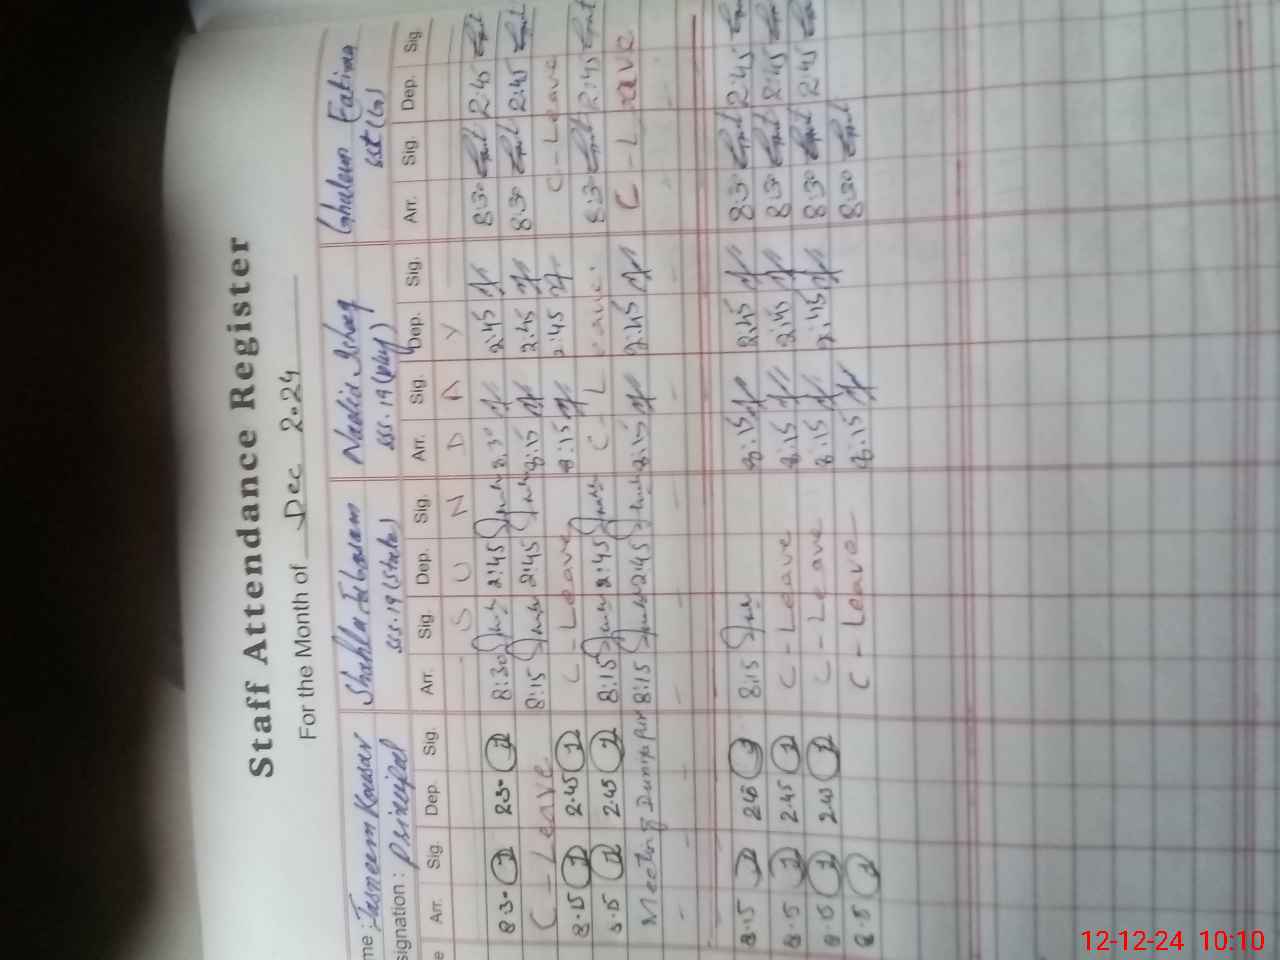 Staff Attendance Register
For the Month of Dec 2024
me: Tasneem Kousar Shahla Tabasam Nadia Ishaq Ghulam Fatima
signation: Principal sss.19 (Stats) sss.19 (Phy) sst (G)
e Arr. Sig. Dep. Sig. Arr. Sig. Dep. Sig. Arr. Sig. Dep. Sig. Arr. Sig. Dep. Sig.
S U N D A Y
8:30 2:30 8:30 2:45 8:30 2:45 8:30 2:45
C - Leave 8:15 2:45 8:15 2:45 8:30 2:45
8.15 2.45 C - Leave 8:15 2:45 C - Leave
8.15 2.45 8:15 2:45 C L eave 8:30 2:45
Meeting 8:15 2:45 8:15 2:45 C - Leave
8.15 2.45 8:15 8:15 2:45 8:30 2:45
8.15 2.45 C - Leave 8:15 2:45 8:30 2:45
8.15 2.45 C - Leave 8:15 2:45 8:30 2:45
8.15 C - Leave 8:15 8:30
12-12-24 10:10